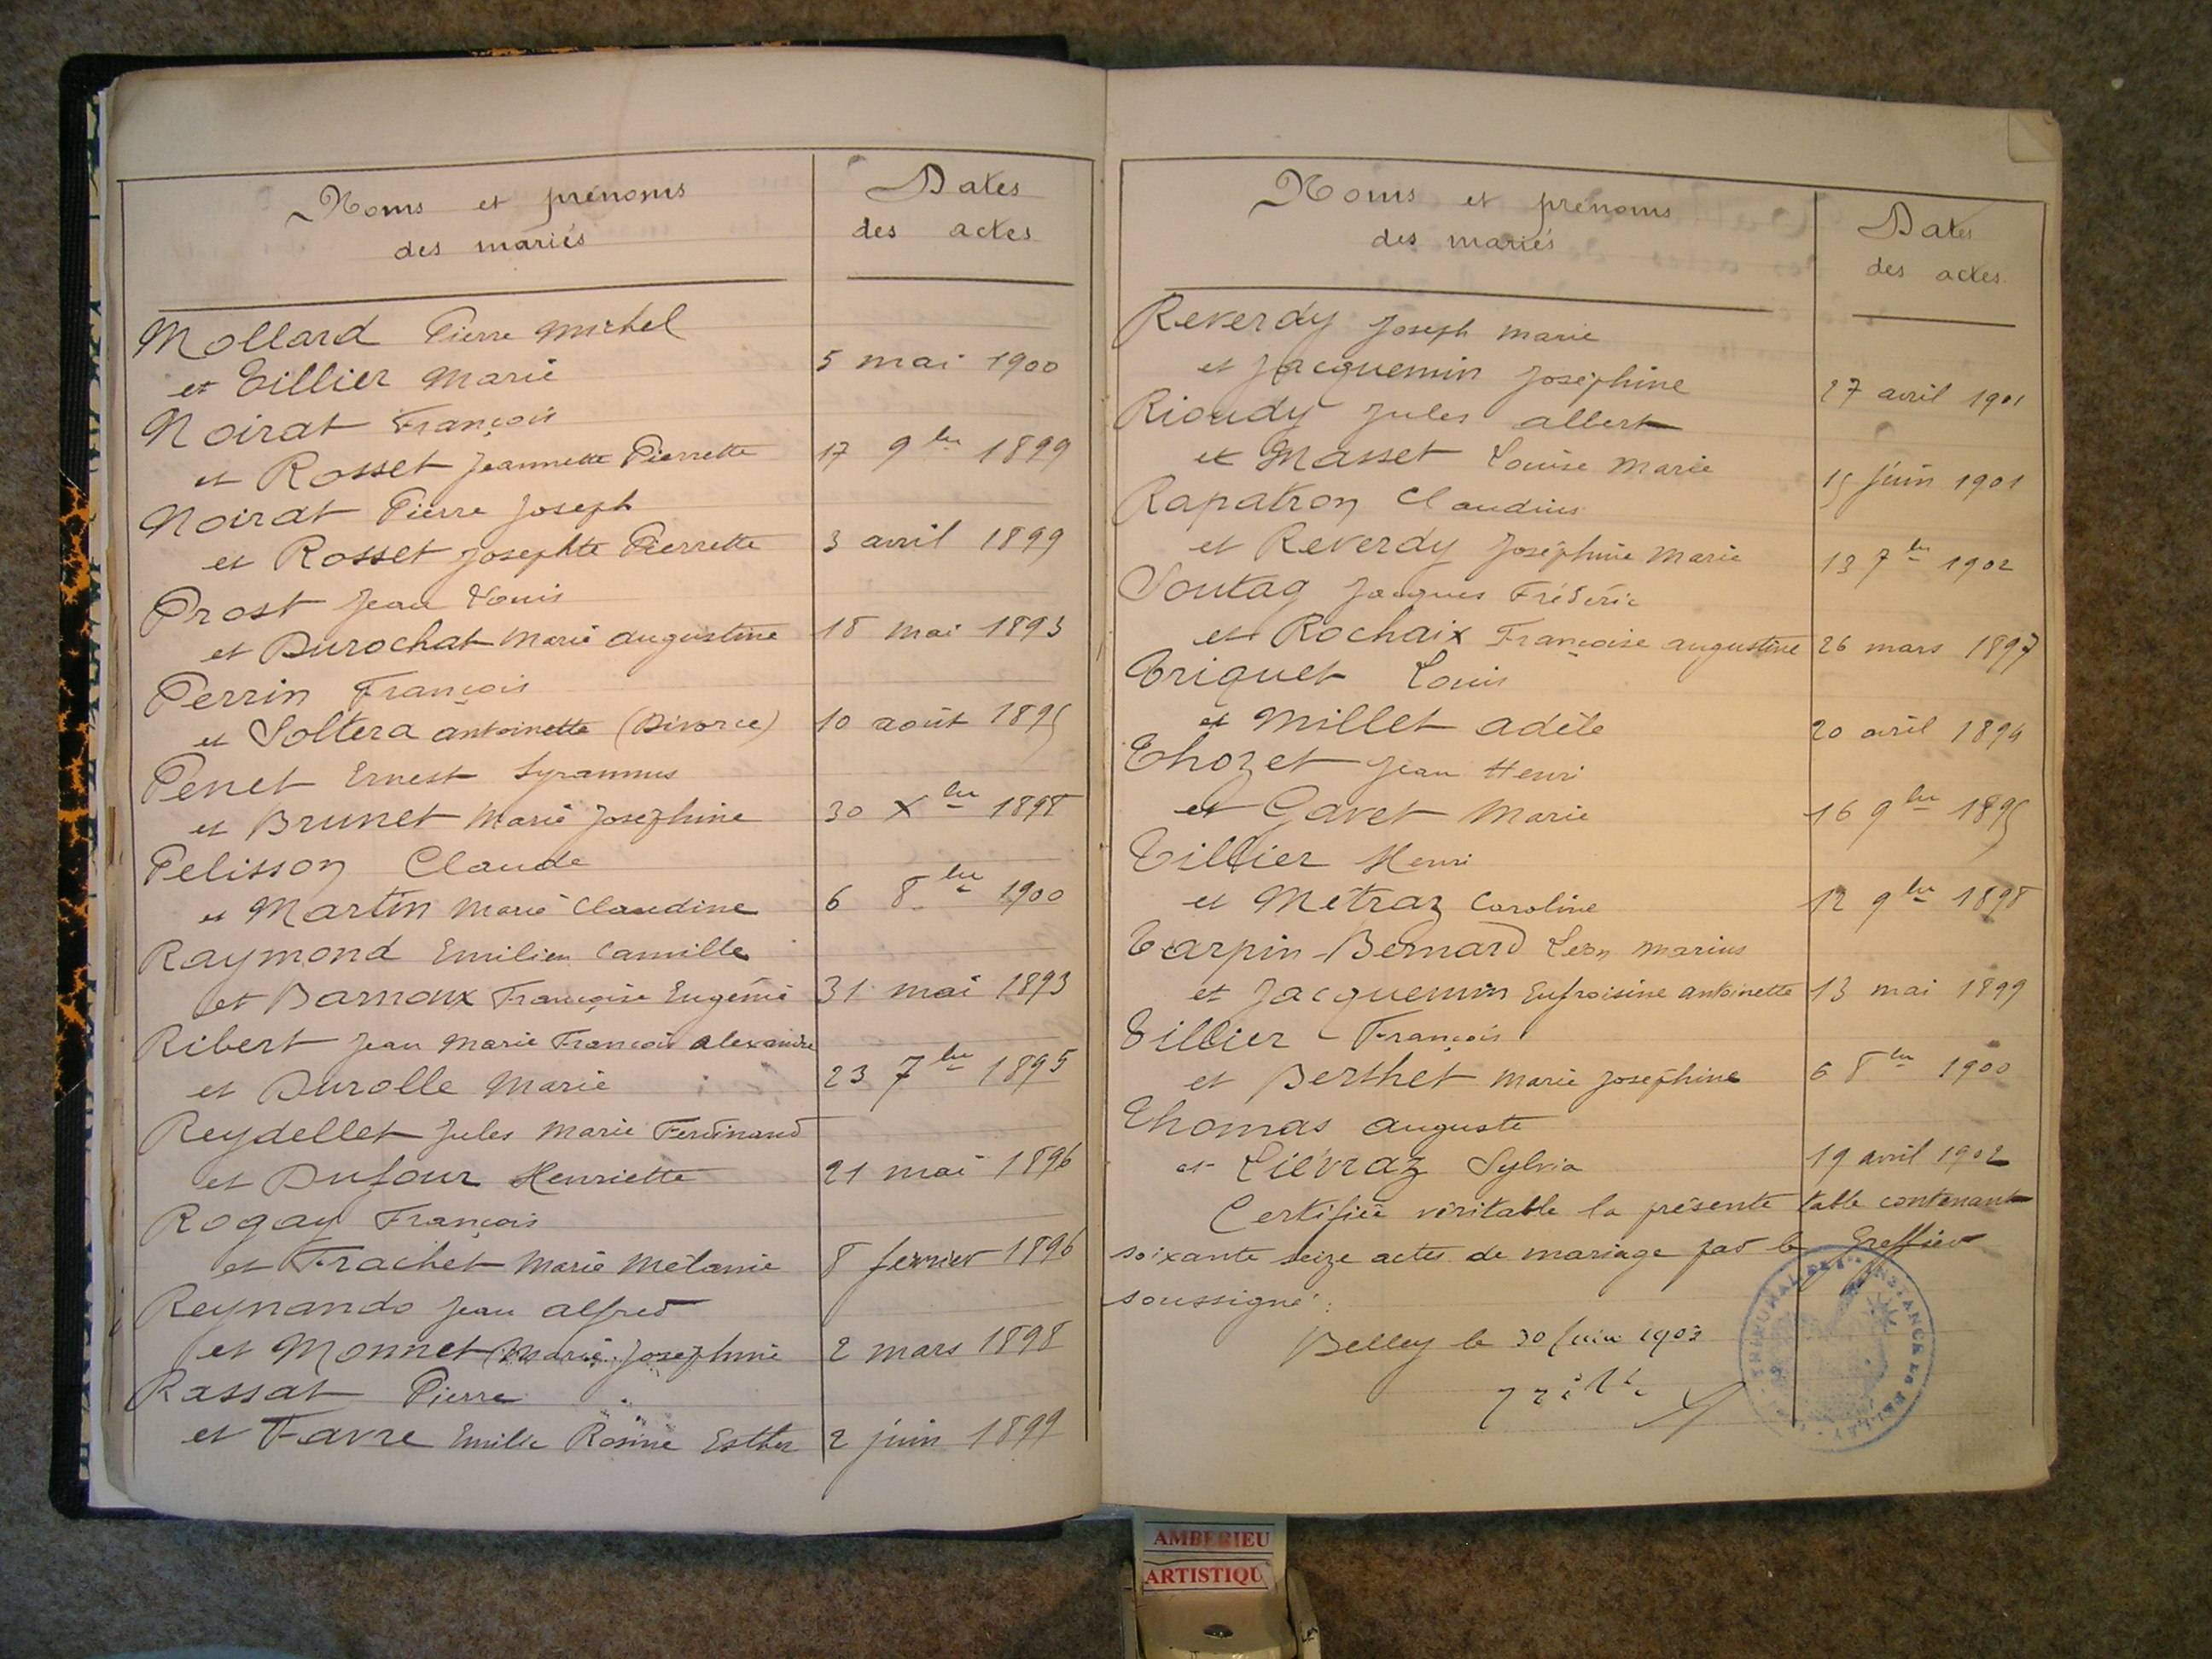 Noms et prénoms
des mariés
Dates
des actes
Mollard Pierre Michel
et Tillier Marie
5 mai 1900
Noirat François
et Rosset Jeannette Pierrette
17 9bre 1899
Noirat Pierre Joseph
et Rosset Josephte Pierrette
3 avril 1899
Prost Jean Louis
et Durochat Marie Augustine
18 mai 1893
Perrin François
et Soltera Antoinette (Divorce)
10 août 1895
Penet Ernest
et Brunet Marie Josephine
30 Xbre 1898
Pelisson Claude
et Martin Marie Claudine
6 8bre 1900
Raymond Emilien Camille
et Barnoux Françoise Eugénie
31 mai 1893
Ribert Jean Marie François Alexandre
et Durolle Marie
23 7bre 1895
Reydellet Jules Marie Ferdinand
et Dufour Henriette
21 mai 1896
Rogay François
et Frachet Marie Mélanie
8 février 1896
Reynando Jean Alfred
et Monnet Marie Josephine
2 mars 1898
Rassat Pierre
et Favre Emilie Rosine Esther
2 juin 1899
Noms et prénoms
des mariés
Dates
des actes
Reverdy Joseph Marie
et Jacquemin Joséphine
27 avril 1901
Rioudy Jules Albert
et Masset Louise Marie
15 juin 1901
Rapatron Claudius
et Reverdy Joséphine Marie
13 7bre 1902
Soutag Jacques Frédéric
et Rochaix Françoise Augustine
26 mars 1897
Triquet Louis
et Millet Adèle
20 avril 1894
Thozet Jean Henri
et Gavet Marie
16 9bre 1895
Tillier Henri
et Métraz Caroline
12 9bre 1898
Tarpin-Bernard Léon Marius
et Jacquemin Eufroisine Antoinette
13 mai 1899
Tillier François
et Berthet Marie Josephine
6 8bre 1900
Thomas Auguste
et Liévraz Sylvia
19 avril 1902
Certifiée véritable la présente table contenant
soixante seize actes de mariage par le Greffier
soussigné :
Belley le 30 Juin 1903
TRIBUNAL INSTANCE BELLEY
AMBERIEU
ARTISTIQU